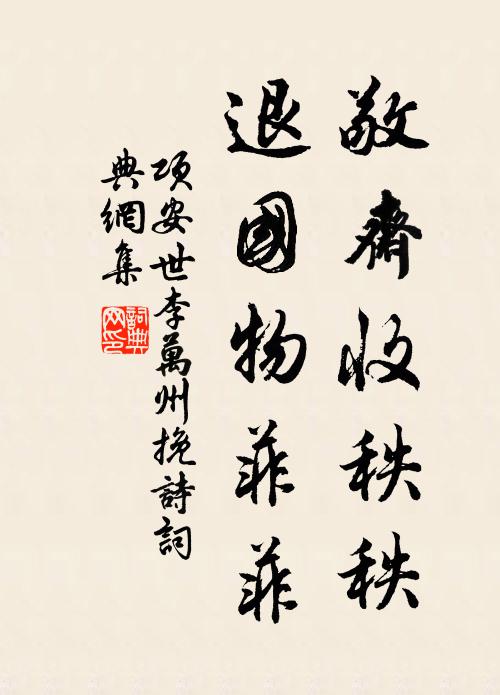 敬齋收秩秩
退國物菲菲
項安世李萬州挽詩詞
典網集
詞典網印